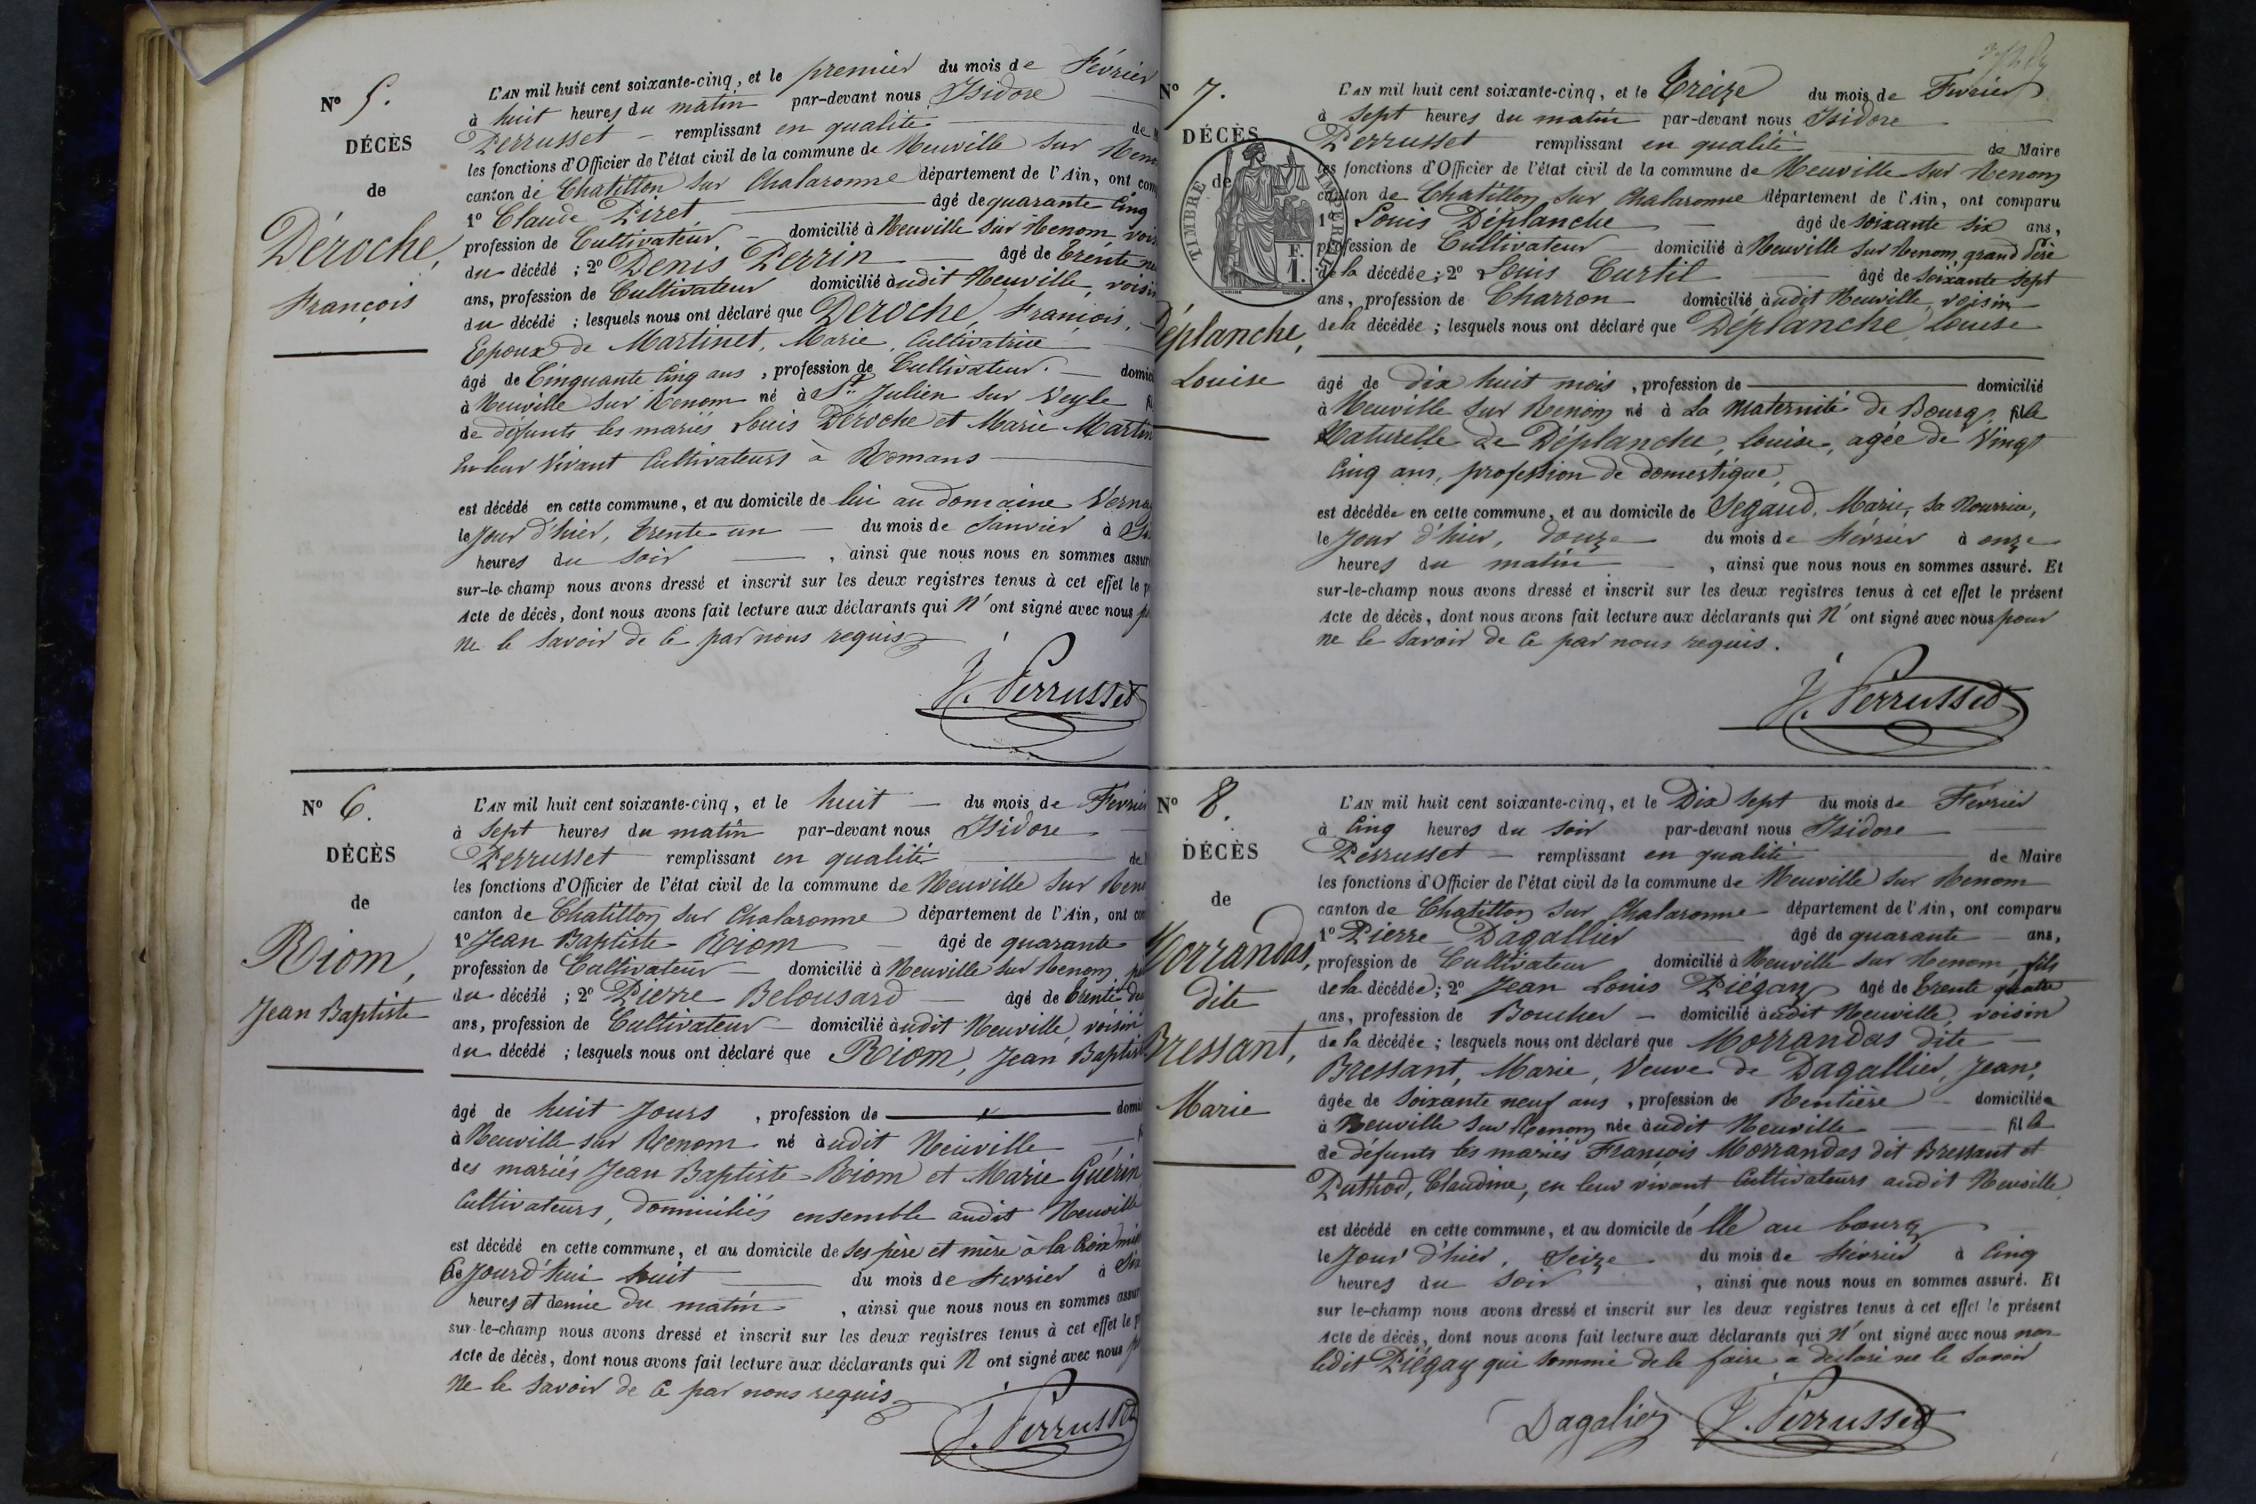 N° 5.
DÉCÈS
de
Déroche,
François
L'AN mil huit cent soixante-cinq, et le premier du mois de Février
à huit heures du matin par-devant nous Isidore
Perrusset remplissant en qualité de
les fonctions d'Officier de l'état civil de la commune de Neuville sur
canton de Chatillon sur Chalaronne département de l'Ain, ont
1° Claude Piret âgé de quarante cinq
profession de Cultivateur domicilié à Neuville sur Renom
du décédé ; 2° Denis Perrin âgé de trente
ans, profession de Cultivateur domicilié audit Neuville, voisin
du décédé ; lesquels nous ont déclaré que Déroche, François,
Epoux de Martinet, Marie, Cultivatrice
âgé de Cinquante Cinq ans, profession de Cultivateur.
à Neuville sur Renom né à St Julien sur Veyle
de défunts les mariés Louis Déroche et Marie Martin
En leur Vivant Cultivateurs à Romans
est décédé en cette commune, et au domicile de lui au domaine
le Jour d'hier, trente un du mois de Janvier à
heures du soir, ainsi que nous nous en sommes
sur-le-champ nous avons dressé et inscrit sur les deux registres tenus à cet effet le
Acte de décès, dont nous avons fait lecture aux déclarants qui N'ont signé avec nous
ne le savoir de ce par nous requis
I. Perrusset
N° 6.
DÉCÈS
de
Riom,
Jean Baptiste
L'AN mil huit cent soixante-cinq, et le huit du mois de
à sept heures du matin par-devant nous Isidore
Perrusset remplissant en qualité de
les fonctions d'Officier de l'état civil de la commune de Neuville sur
canton de Chatillon sur Chalaronne département de l'Ain, ont
1° Jean Baptiste Riom âgé de quarante
profession de Cultivateur domicilié à Neuville sur Renom,
du décédé ; 2° Pierre Belousard âgé de trente
ans, profession de Cultivateur domicilié audit Neuville, voisin
du décédé ; lesquels nous ont déclaré que Riom, Jean
âgé de huit Jours, profession de
à Neuville sur Renom né audit Neuville
des mariés Jean Baptiste Riom et Marie Guérin
Cultivateurs, domiciliés ensemble audit Neuville
est décédé en cette commune, et au domicile de ses père et mère à la Croix
Ce Jourd'hui huit du mois de Février à
heures et demie du matin, ainsi que nous nous en sommes
sur-le-champ nous avons dressé et inscrit sur les deux registres tenus à cet effet le
Acte de décès, dont nous avons fait lecture aux déclarants qui N'ont signé avec nous
Ne le savoir de ce par nous requis
I. Perrusset
N° 7.
DÉCÈS
de
TIMBRE IMPÉRIAL
F.
1.
Déplanche,
Louise
L'AN mil huit cent soixante-cinq, et le treize du mois de Février
à sept heures du matin par-devant nous Isidore
Perrusset remplissant en qualité de Maire
les fonctions d'Officier de l'état civil de la commune de Neuville sur Renom
canton de Chatillon sur Chalaronne département de l'Ain, ont comparu
1° Louis Déplanche âgé de soixante six ans,
profession de Cultivateur domicilié à Neuville sur Renom, grand Père
de la décédée ; 2° Louis Curtil âgé de soixante sept
ans, profession de Charron domicilié audit Neuville, voisin
de la décédée ; lesquels nous ont déclaré que Déplanche, Louise
âgé de dix huit mois, profession de domicilié
à Neuville sur Renom né à La Maternité de Bourg, fille
Naturelle de Déplanche, Louise, agée de Vingt
Cinq ans, profession de domestique,
est décédée en cette commune, et au domicile de Segaud, Marie, sa Nourrice,
le Jour d'hier, douze du mois de Février à onze
heures du matin, ainsi que nous nous en sommes assuré. Et
sur-le-champ nous avons dressé et inscrit sur les deux registres tenus à cet effet le présent
Acte de décès, dont nous avons fait lecture aux déclarants qui N'ont signé avec nous pour
ne le savoir de ce par nous requis.
I. Perrusset
N° 8.
DÉCÈS
de
Morrandas,
dite
Bressant,
Marie
L'AN mil huit cent soixante-cinq, et le Dix sept du mois de Février
à Cinq heures du soir par-devant nous Isidore
Perrusset remplissant en qualité de Maire
les fonctions d'Officier de l'état civil de la commune de Neuville sur Renom
canton de Chatillon sur Chalaronne département de l'Ain, ont comparu
1° Pierre Dagallier âgé de quarante ans,
profession de Cultivateur domicilié à Neuville sur Renom, fils
de la décédée ; 2° Jean Louis Piégay âgé de trente quatre
ans, profession de Boucher domicilié audit Neuville, voisin
de la décédée ; lesquels nous ont déclaré que Morrandas dite
Bressant, Marie, Veuve de Dagallier, Jean,
âgée de soixante neuf ans, profession de Rentière domiciliée
à Neuville sur Renom née audit Neuville fille
de défunts les mariés François Morrandas dit Bressant et
Puthod, Claudine, en leur vivant Cultivateurs audit Neuville
est décédé en cette commune, et au domicile d'elle au bourg
le Jour d'hier, Seize du mois de Février à Cinq
heures du soir, ainsi que nous nous en sommes assuré. Et
sur le-champ nous avons dressé et inscrit sur les deux registres tenus à cet effet le présent
Acte de décès, dont nous avons fait lecture aux déclarants qui N'ont signé avec nous non
ledit Piégay qui sommé de le faire a declaré ne le savoir
Dagalier I. Perrusset